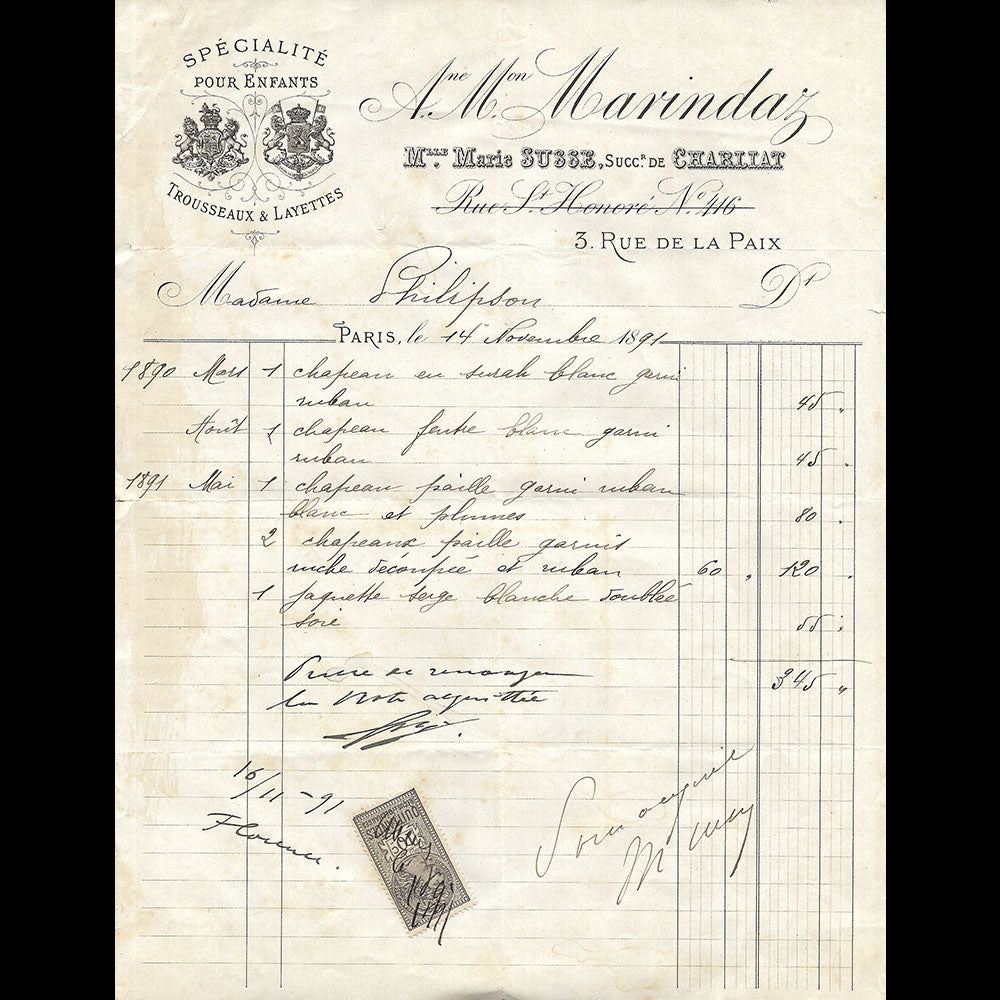 SPÉCIALITÉ
POUR ENFANTS
TROUSSEAUX & LAYETTES
Ane Mon Marindaz
Mlle Marie SUSSE, Succr. DE CHARLIAT
Rue St Honoré No 416
3. RUE DE LA PAIX
Madame Philipson Dt
PARIS, le 14 Novembre 1891
1890 Mars 1 chapeau en surah blanc garni
ruban 45 "
Août 1 chapeau feutre blanc garni
ruban 45 "
1891 Mai 1 chapeau paille garni ruban
blanc et plumes 80 "
2 chapeaux paille garnis
ruche decoupée et ruban 60 " 120 "
1 jaquette serge blanche doublée
soie 55 "
345 "
Prière de renvoyer
la Note acquittée
16/11-91
Florence.
Pour acquit